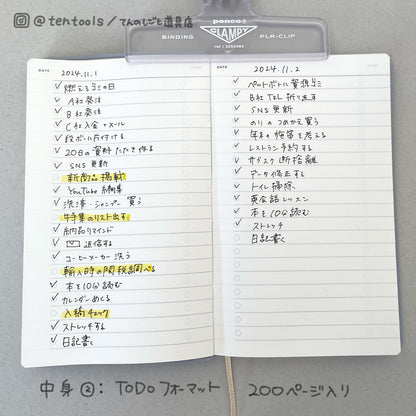 @tentools/てんのしごと道具店
penco®
CLAMPY
BINDING PLA-CLIP
DATE
2024.11.1
燃えるゴミの日
A社発注
B社発注
C社入金→メール
段ボール片付ける
20日の資料たたき作る
SNS更新
新商品掲載
YouTube編集
洗剤・シャンプー買う
特集のリスト出す
納品リマインド
返信する
コーヒーメーカー洗う
輸入時の関税調べる
本を10分読む
カレンダーめくる
入稿チェック
ストレッチする
日記書く
DATE
2024.11.2
ペットボトル資源ゴミ
B社TEL折り返す
SNS更新
のりのつめかえ買う
年末の施策を考える
レストラン予約する
サブスク断捨離
データ修正する
トイレ掃除
英会話レッスン
本を10分読む
ストレッチ
日記書く
中身②：TODOフォーマット 200ページ入り